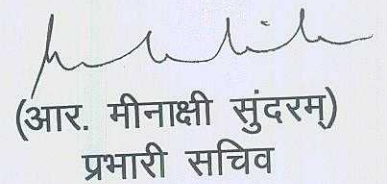 (आर. मीनाक्षी सुंदरम्)
प्रभारी सचिव